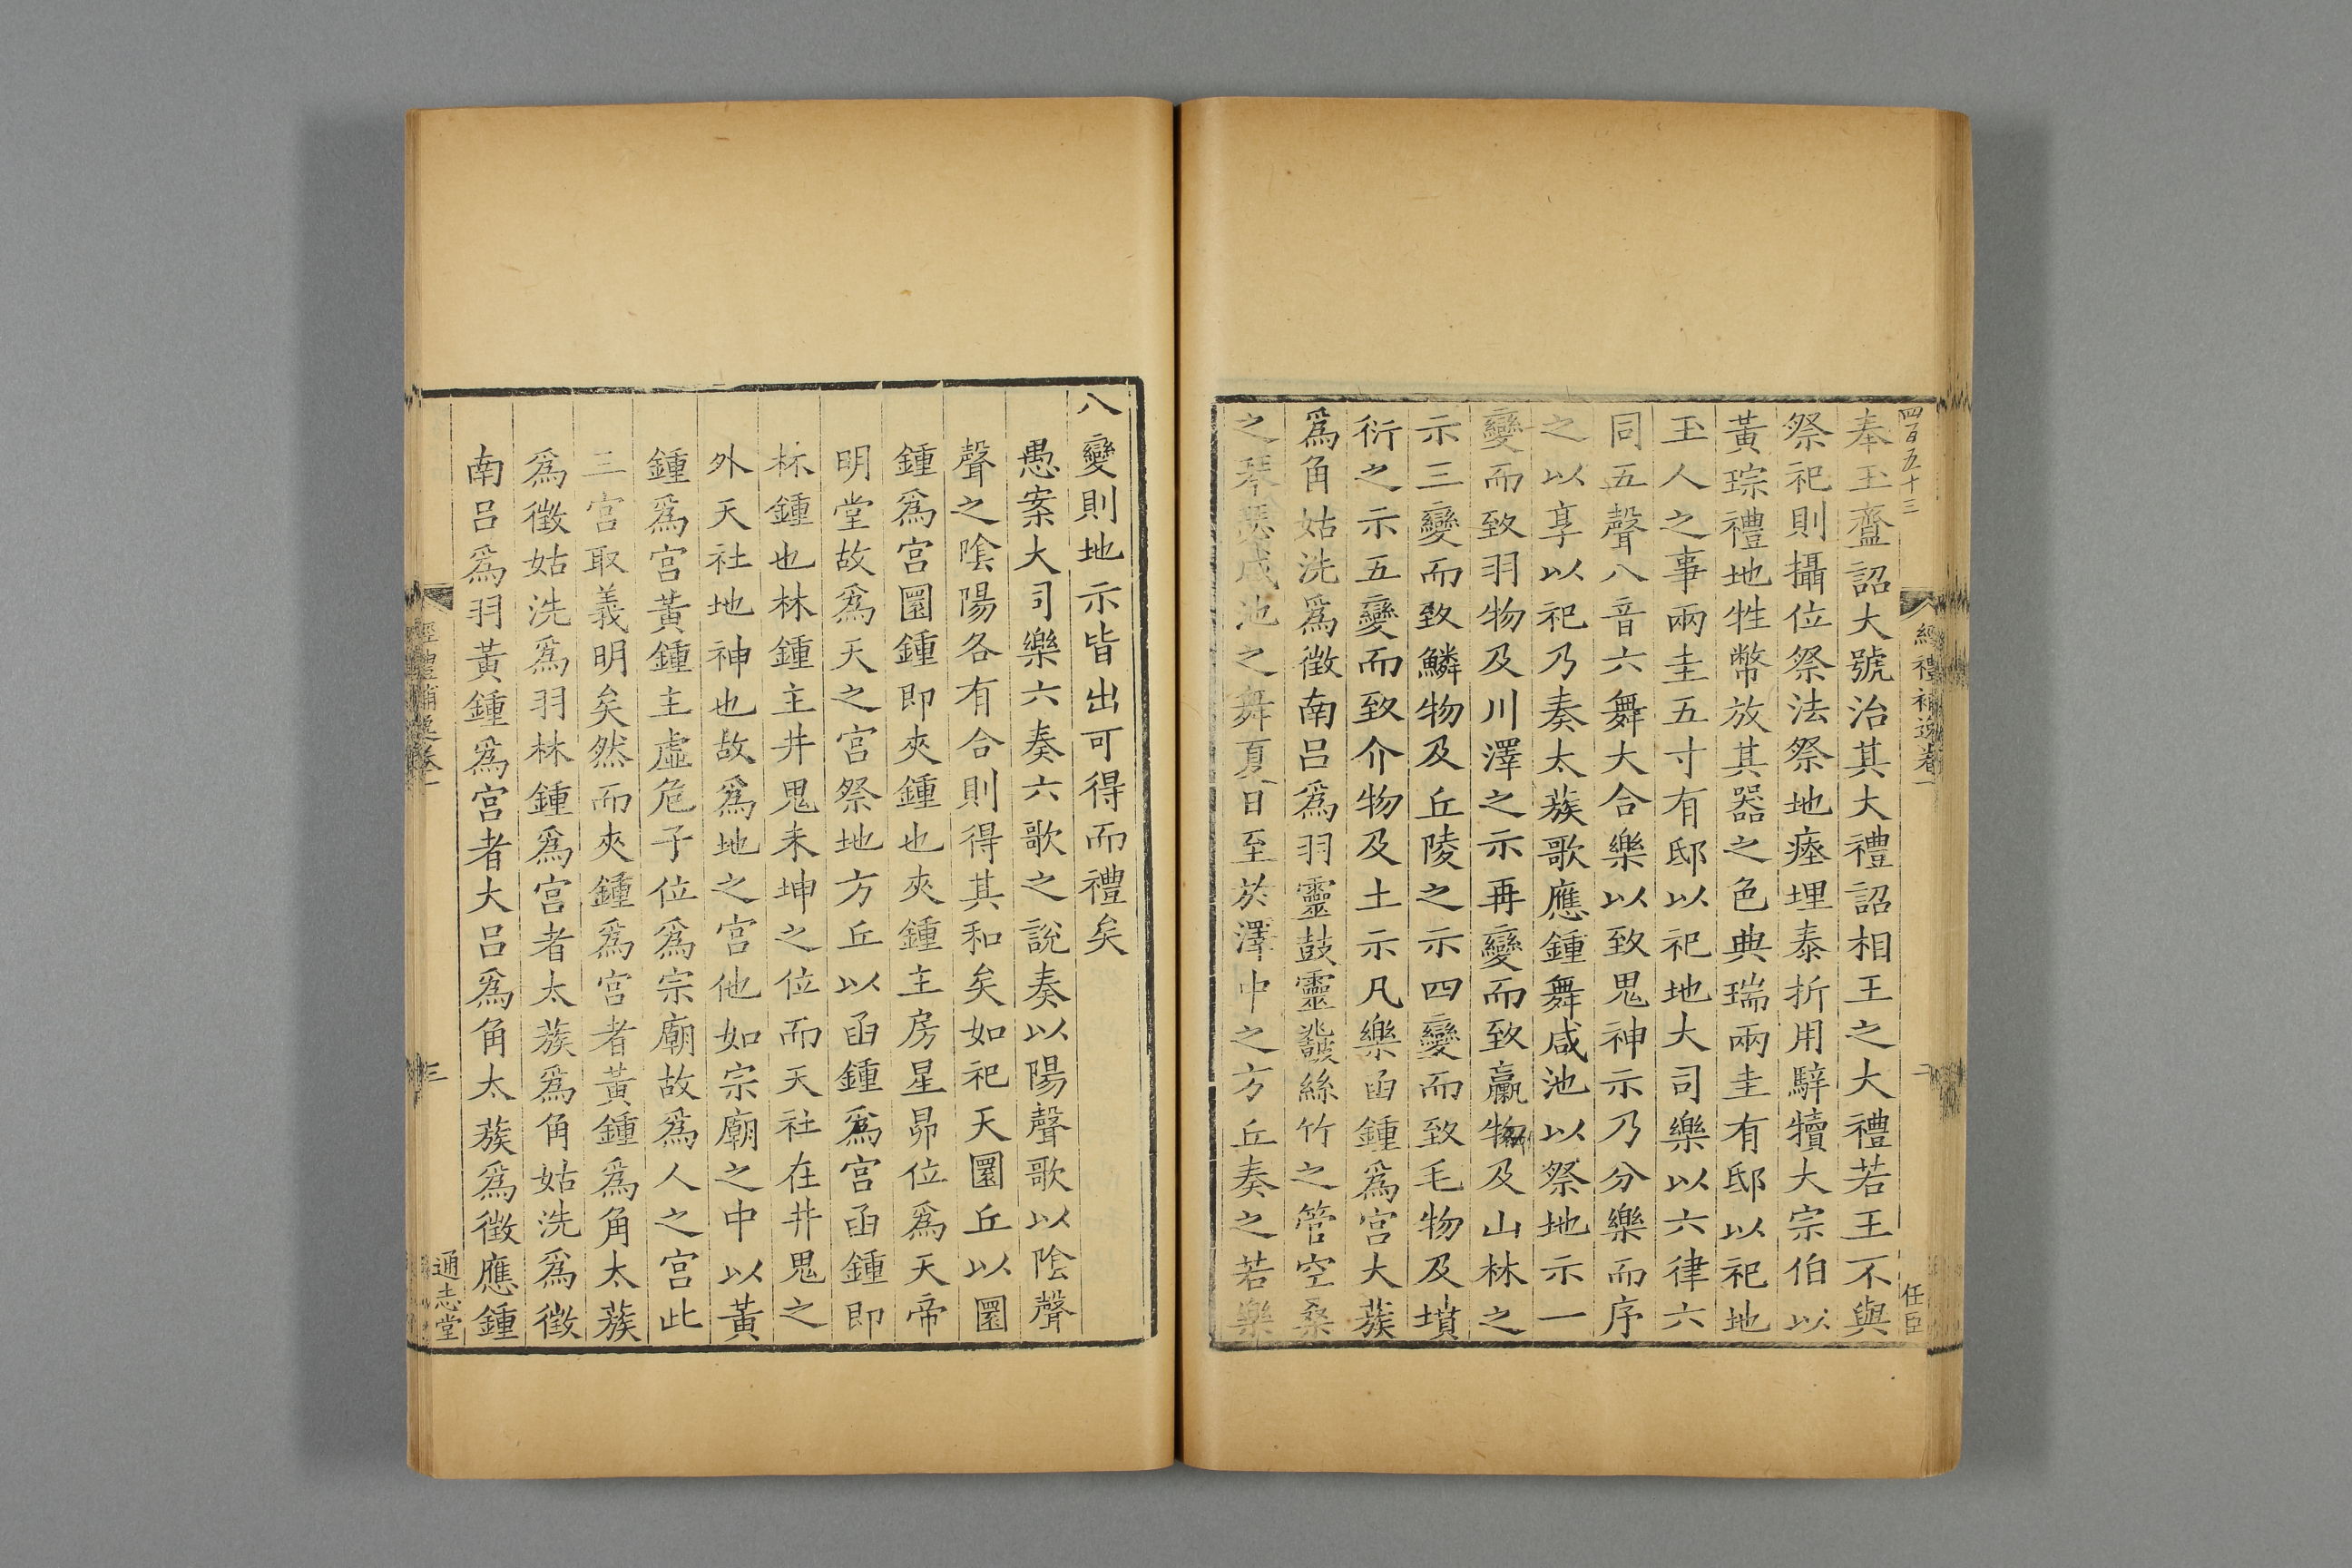 四百五十三
經禮補逸卷一
二
任臣
奉玉齍詔大號治其大禮詔相王之大禮若王不與
祭祀則攝位祭法祭地瘞埋泰折用騂犢大宗伯以
黃琮禮地牲幣放其器之色典瑞兩圭有邸以祀地
玉人之事兩圭五寸有邸以祀地大司樂以六律六
同五聲八音六舞大合樂以致鬼神示乃分樂而序
之以享以祀乃奏太蔟歌應鍾舞咸池以祭地示一
變而致羽物及川澤之示再變而致臝物及山林之
示三變而致鱗物及丘陵之示四變而致毛物及墳
衍之示五變而致介物及土示凡樂函鍾為宮大蔟
為角姑洗為徵南呂為羽靈鼓靈鼗絲竹之管空桑
之琴瑟咸池之舞夏日至於澤中之方丘奏之若樂
八變則地示皆出可得而禮矣
愚案大司樂六奏六歌之說奏以陽聲歌以陰聲
聲之陰陽各有合則得其和矣如祀天圜丘以圜
鍾為宮圜鍾即夾鍾也夾鍾主房星昴位為天帝
明堂故為天之宮祭地方丘以函鍾為宮函鍾即
林鍾也林鍾主井鬼未坤之位而天社在井鬼之
外天社地神也故為地之宮他如宗廟之中以黃
鍾為宮黃鍾主虛危子位為宗廟故為人之宮此
三宮取義明矣然而夾鍾為宮者黃鍾為角太蔟
為徵姑洗為羽林鍾為宮者太蔟為角姑洗為徵
南呂為羽黃鍾為宮者大呂為角太蔟為徵應鍾
經禮補逸卷一
三
通志堂